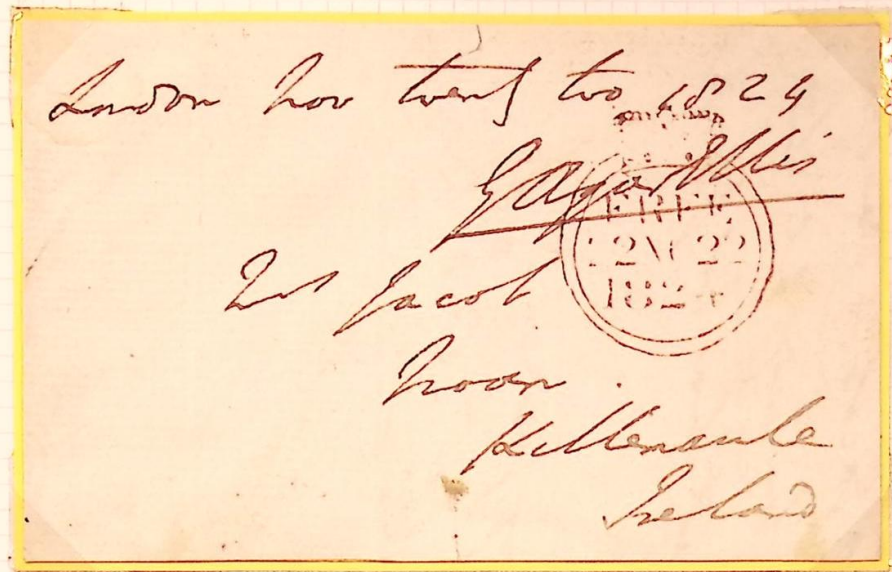 London Nov twenty two 1824
GAgar Ellis
FREE
22 NO 22
1824
Mrs Jacob
Noan
Killenaule
Ireland